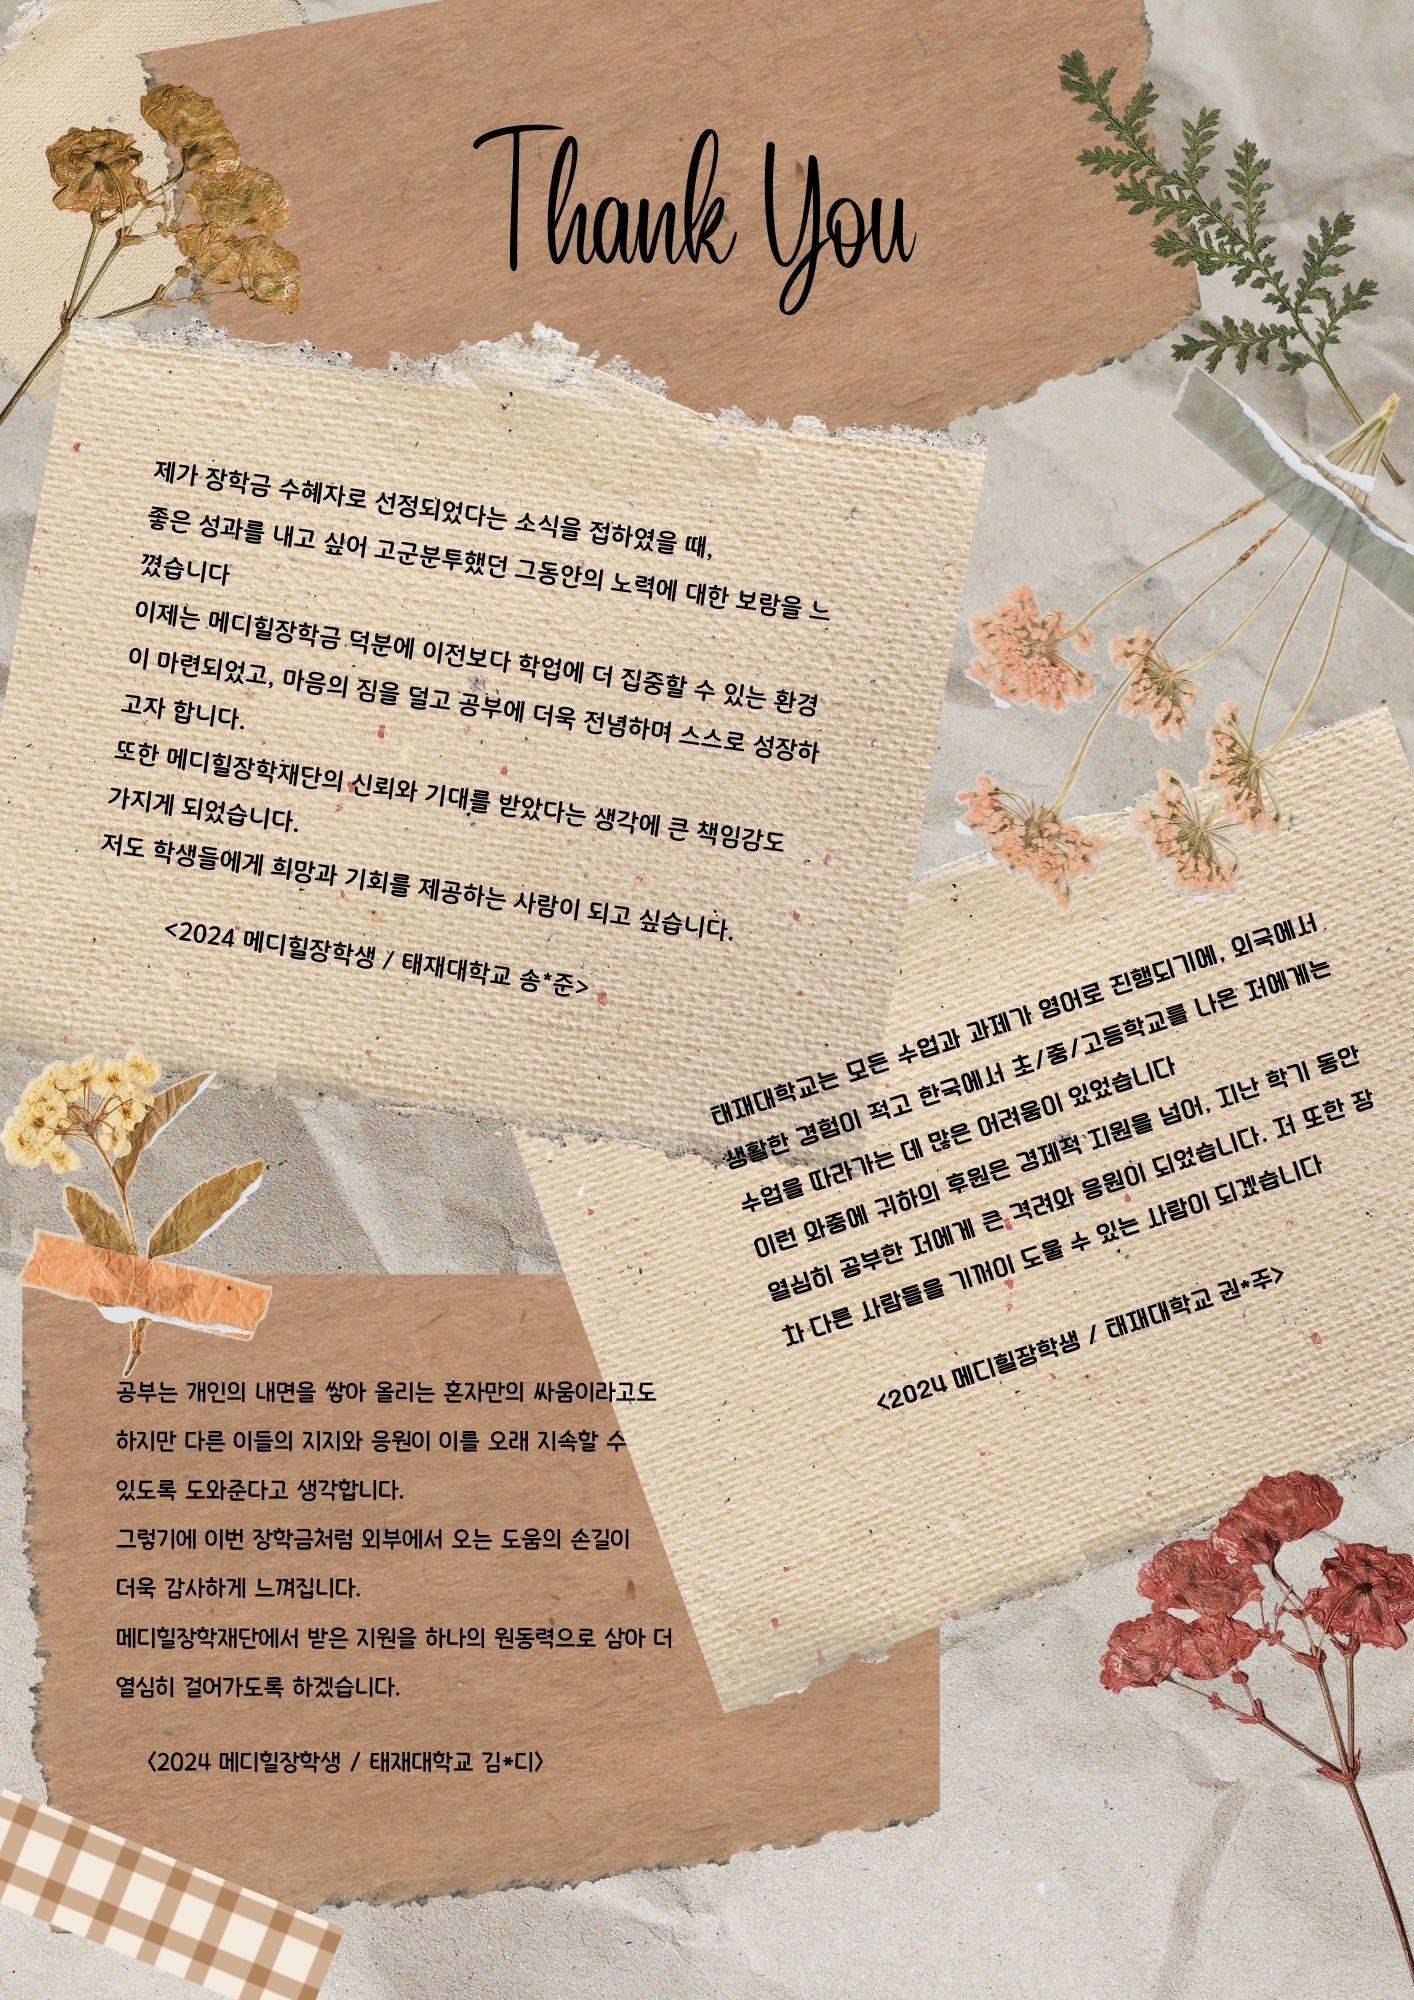 Thank You
제가 장학금 수혜자로 선정되었다는 소식을 접하였을 때,
좋은 성과를 내고 싶어 고군분투했던 그동안의 노력에 대한 보람을 느
꼈습니다
이제는 메디힐장학금 덕분에 이전보다 학업에 더 집중할 수 있는 환경
이 마련되었고, 마음의 짐을 덜고 공부에 더욱 전념하며 스스로 성장하
고자 합니다.
또한 메디힐장학재단의 신뢰와 기대를 받았다는 생각에 큰 책임감도
가지게 되었습니다.
저도 학생들에게 희망과 기회를 제공하는 사람이 되고 싶습니다.
<2024 메디힐장학생 / 태재대학교 송*준>
태재대학교는 모든 수업과 과제가 영어로 진행되기에, 외국에서
생활한 경험이 적고 한국에서 초/중/고등학교를 나온 저에게는
수업을 따라가는 데 많은 어려움이 있었습니다
이런 와중에 귀하의 후원은 경제적 지원을 넘어, 지난 학기 동안
열심히 공부한 저에게 큰 격려와 응원이 되었습니다. 저 또한 장
차 다른 사람들을 기꺼이 도울 수 있는 사람이 되겠습니다
<2024 메디힐장학생 / 태재대학교 권*주>
공부는 개인의 내면을 쌓아 올리는 혼자만의 싸움이라고도
하지만 다른 이들의 지지와 응원이 이를 오래 지속할 수
있도록 도와준다고 생각합니다.
그렇기에 이번 장학금처럼 외부에서 오는 도움의 손길이
더욱 감사하게 느껴집니다.
메디힐장학재단에서 받은 지원을 하나의 원동력으로 삼아 더
열심히 걸어가도록 하겠습니다.
<2024 메디힐장학생 / 태재대학교 김*디>